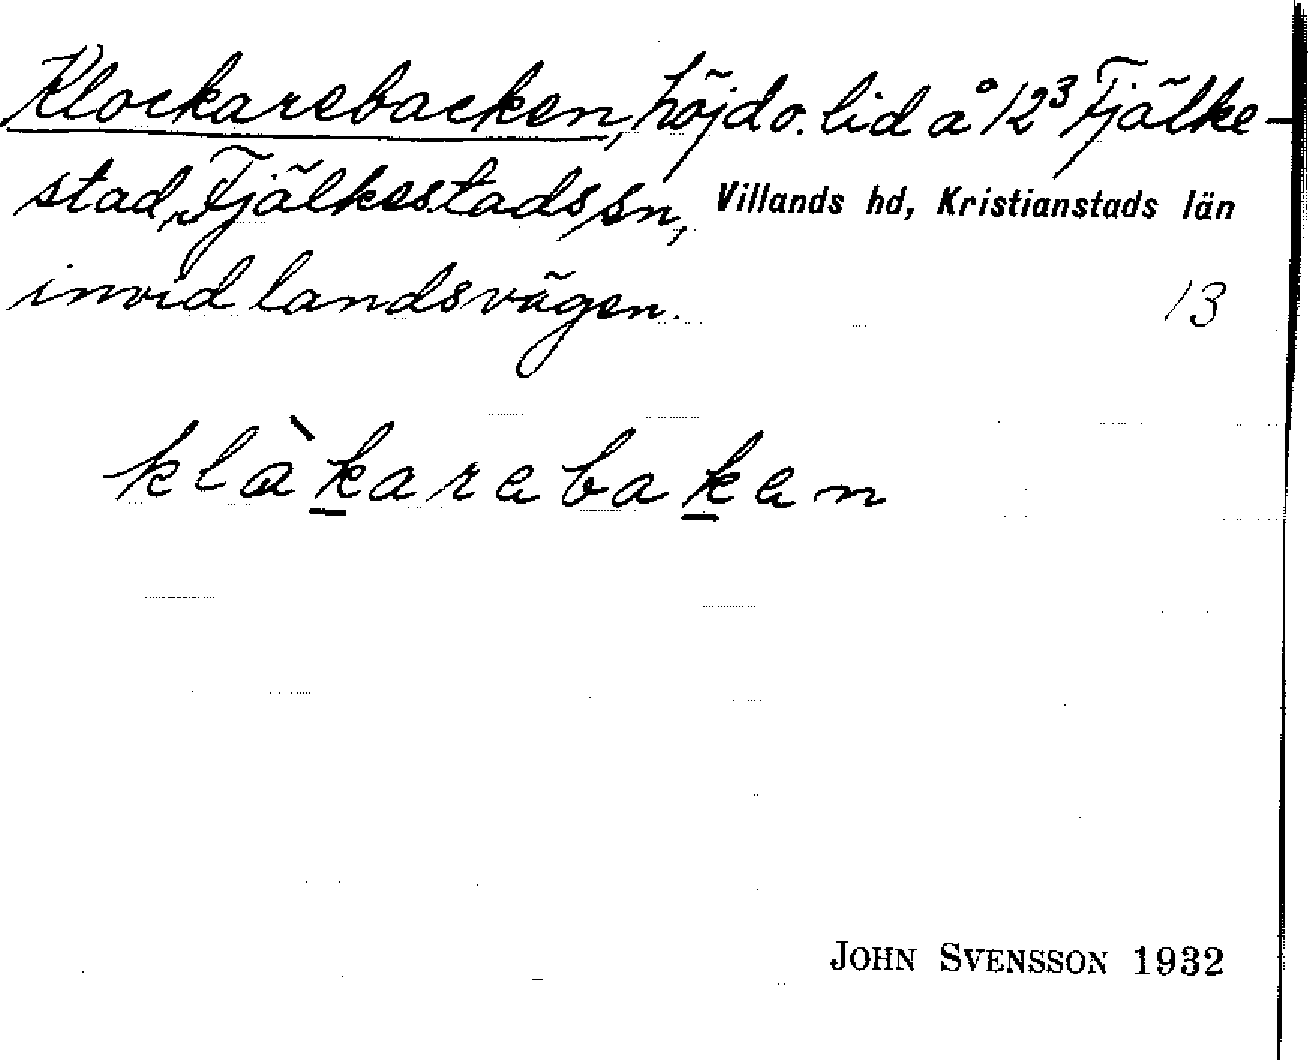 Klockarebacken, höjd o. lid å 12³ Fjälke-
stad, Fjälkestads sn, Villands hd, Kristianstads län
invid landsvägen. 13
klå̀karebaken
JOHN SVENSSON 1932